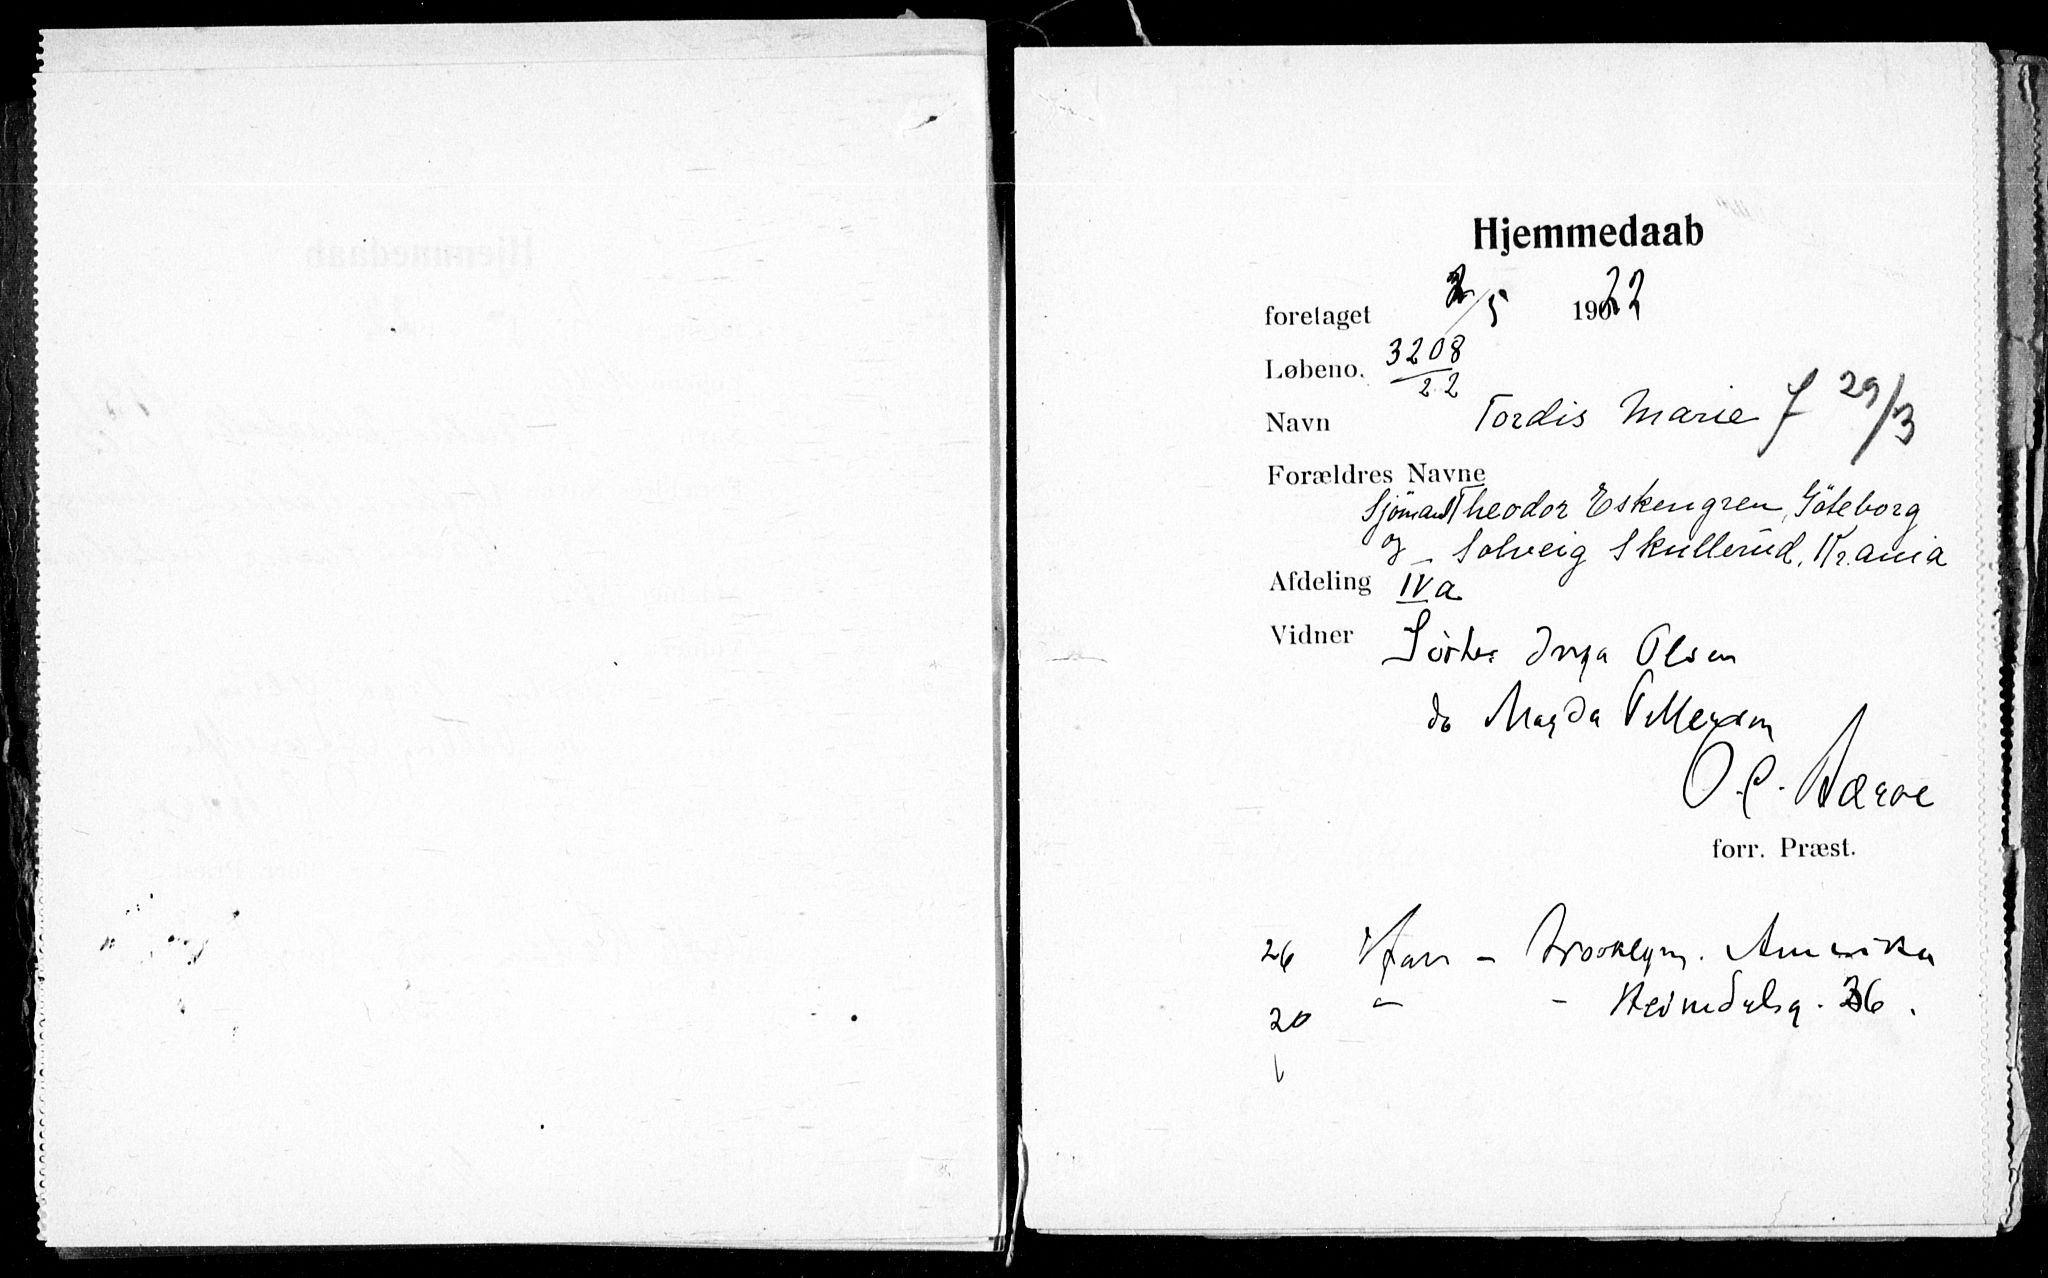 Hjemmedaab
foretaget 2/5 1922
Løbeno. 3208/22
Navn Tordis Marie f 29/3
Forældres Navne
Sjömand Theodor Eskengren, Göteborg
og Solveig Skullerud, Kr.ania
Afdeling IVa
Vidner Søster Inga Olsen
do Magda
O. C.
forr. Præst.
26 Ugift – Brooklyn. Amerika
20 " – 36.